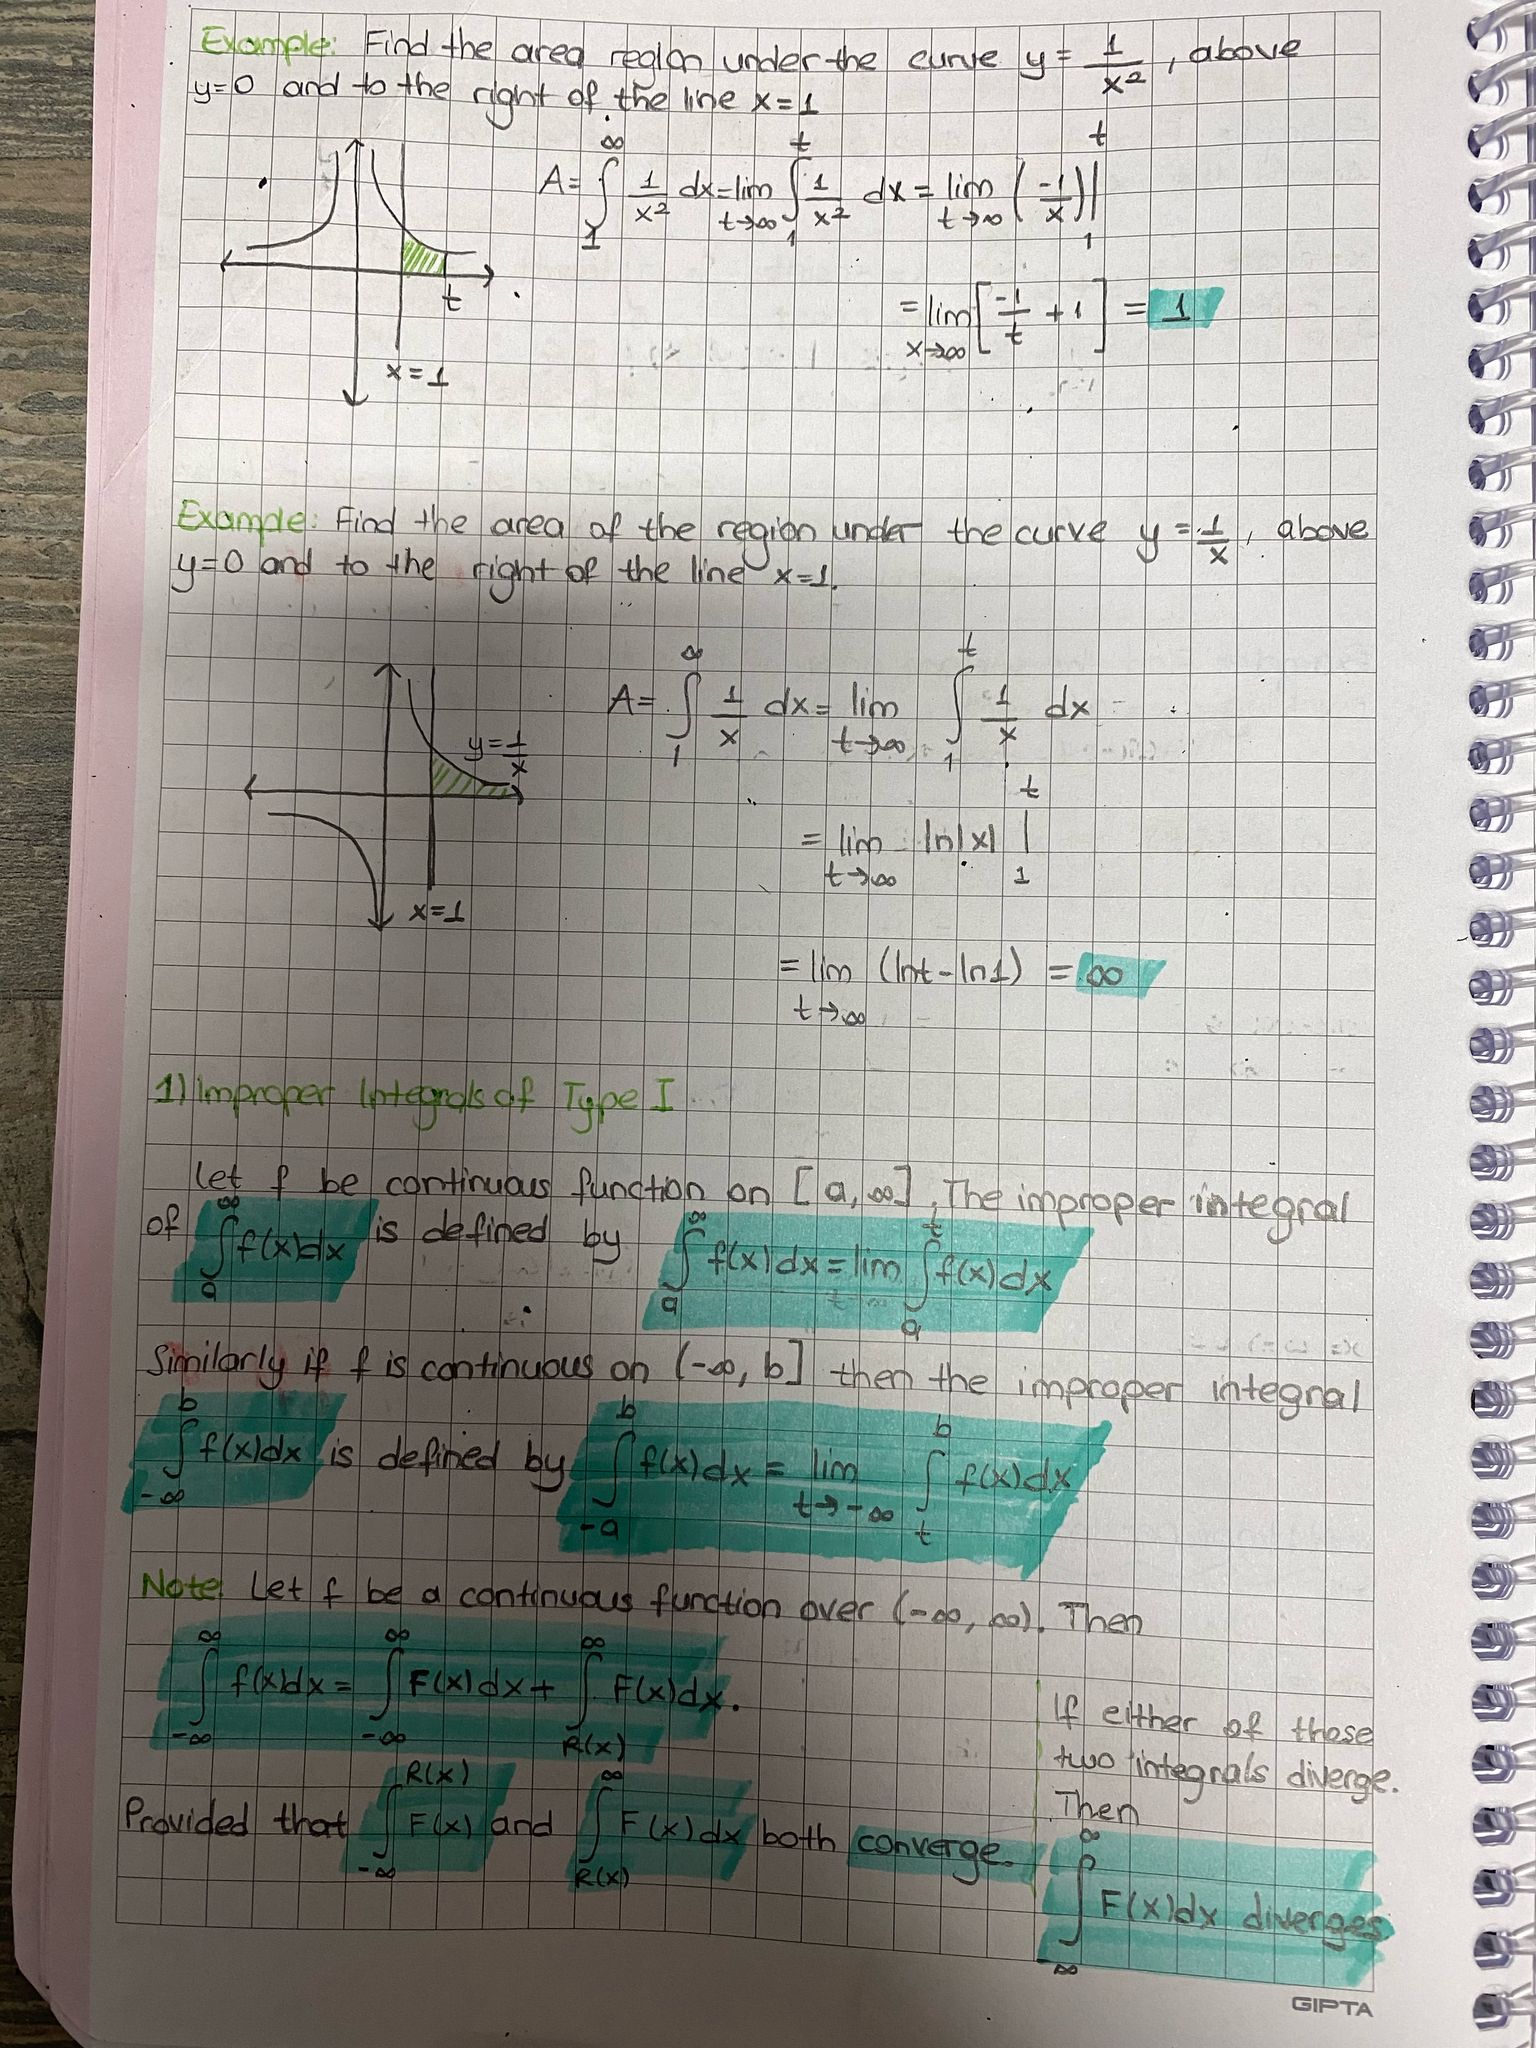 Example: Find the area region under the curve y = 1/x², above
y=0 and to the right of the line x=1
A= ∫₁^∞ 1/x² dx = lim t→∞ ∫₁^t 1/x² dx = lim t→∞ (-1/x)|₁^t
= lim x→∞ [-1/t + 1] = 1
t
x=1
Example: Find the area of the region under the curve y = 1/x, above
y=0 and to the right of the line x=1.
A= ∫₁^∞ 1/x dx = lim t→∞ ∫₁^t 1/x dx
y=1/x
= lim t→∞ ln|x| |₁^t
x=1
= lim t→∞ (lnt-ln1) = ∞
1) Improper Integrals of Type I
Let f be continuous function on [a, ∞], The improper integral
of ∫ₐ^∞ f(x)dx is defined by ∫ₐ^∞ f(x)dx = lim t→∞ ∫ₐ^t f(x)dx
Similarly if f is continuous on (-∞, b] then the improper integral
∫₋∞^b f(x)dx is defined by ∫₋ₐ^b f(x)dx = lim t→-∞ ∫ₜ^b f(x)dx
Note: Let f be a continuous function over (-∞, ∞). Then
∫₋∞^∞ f(x)dx = ∫₋∞^∞ F(x)dx + ∫_R(x)^∞ F(x)dx.
Provided that ∫₋∞^R(x) F(x) and ∫_R(x)^∞ F(x)dx both converge.
If either of these
two integrals diverge.
Then
∫₋∞^∞ F(x)dx diverges
GIPTA